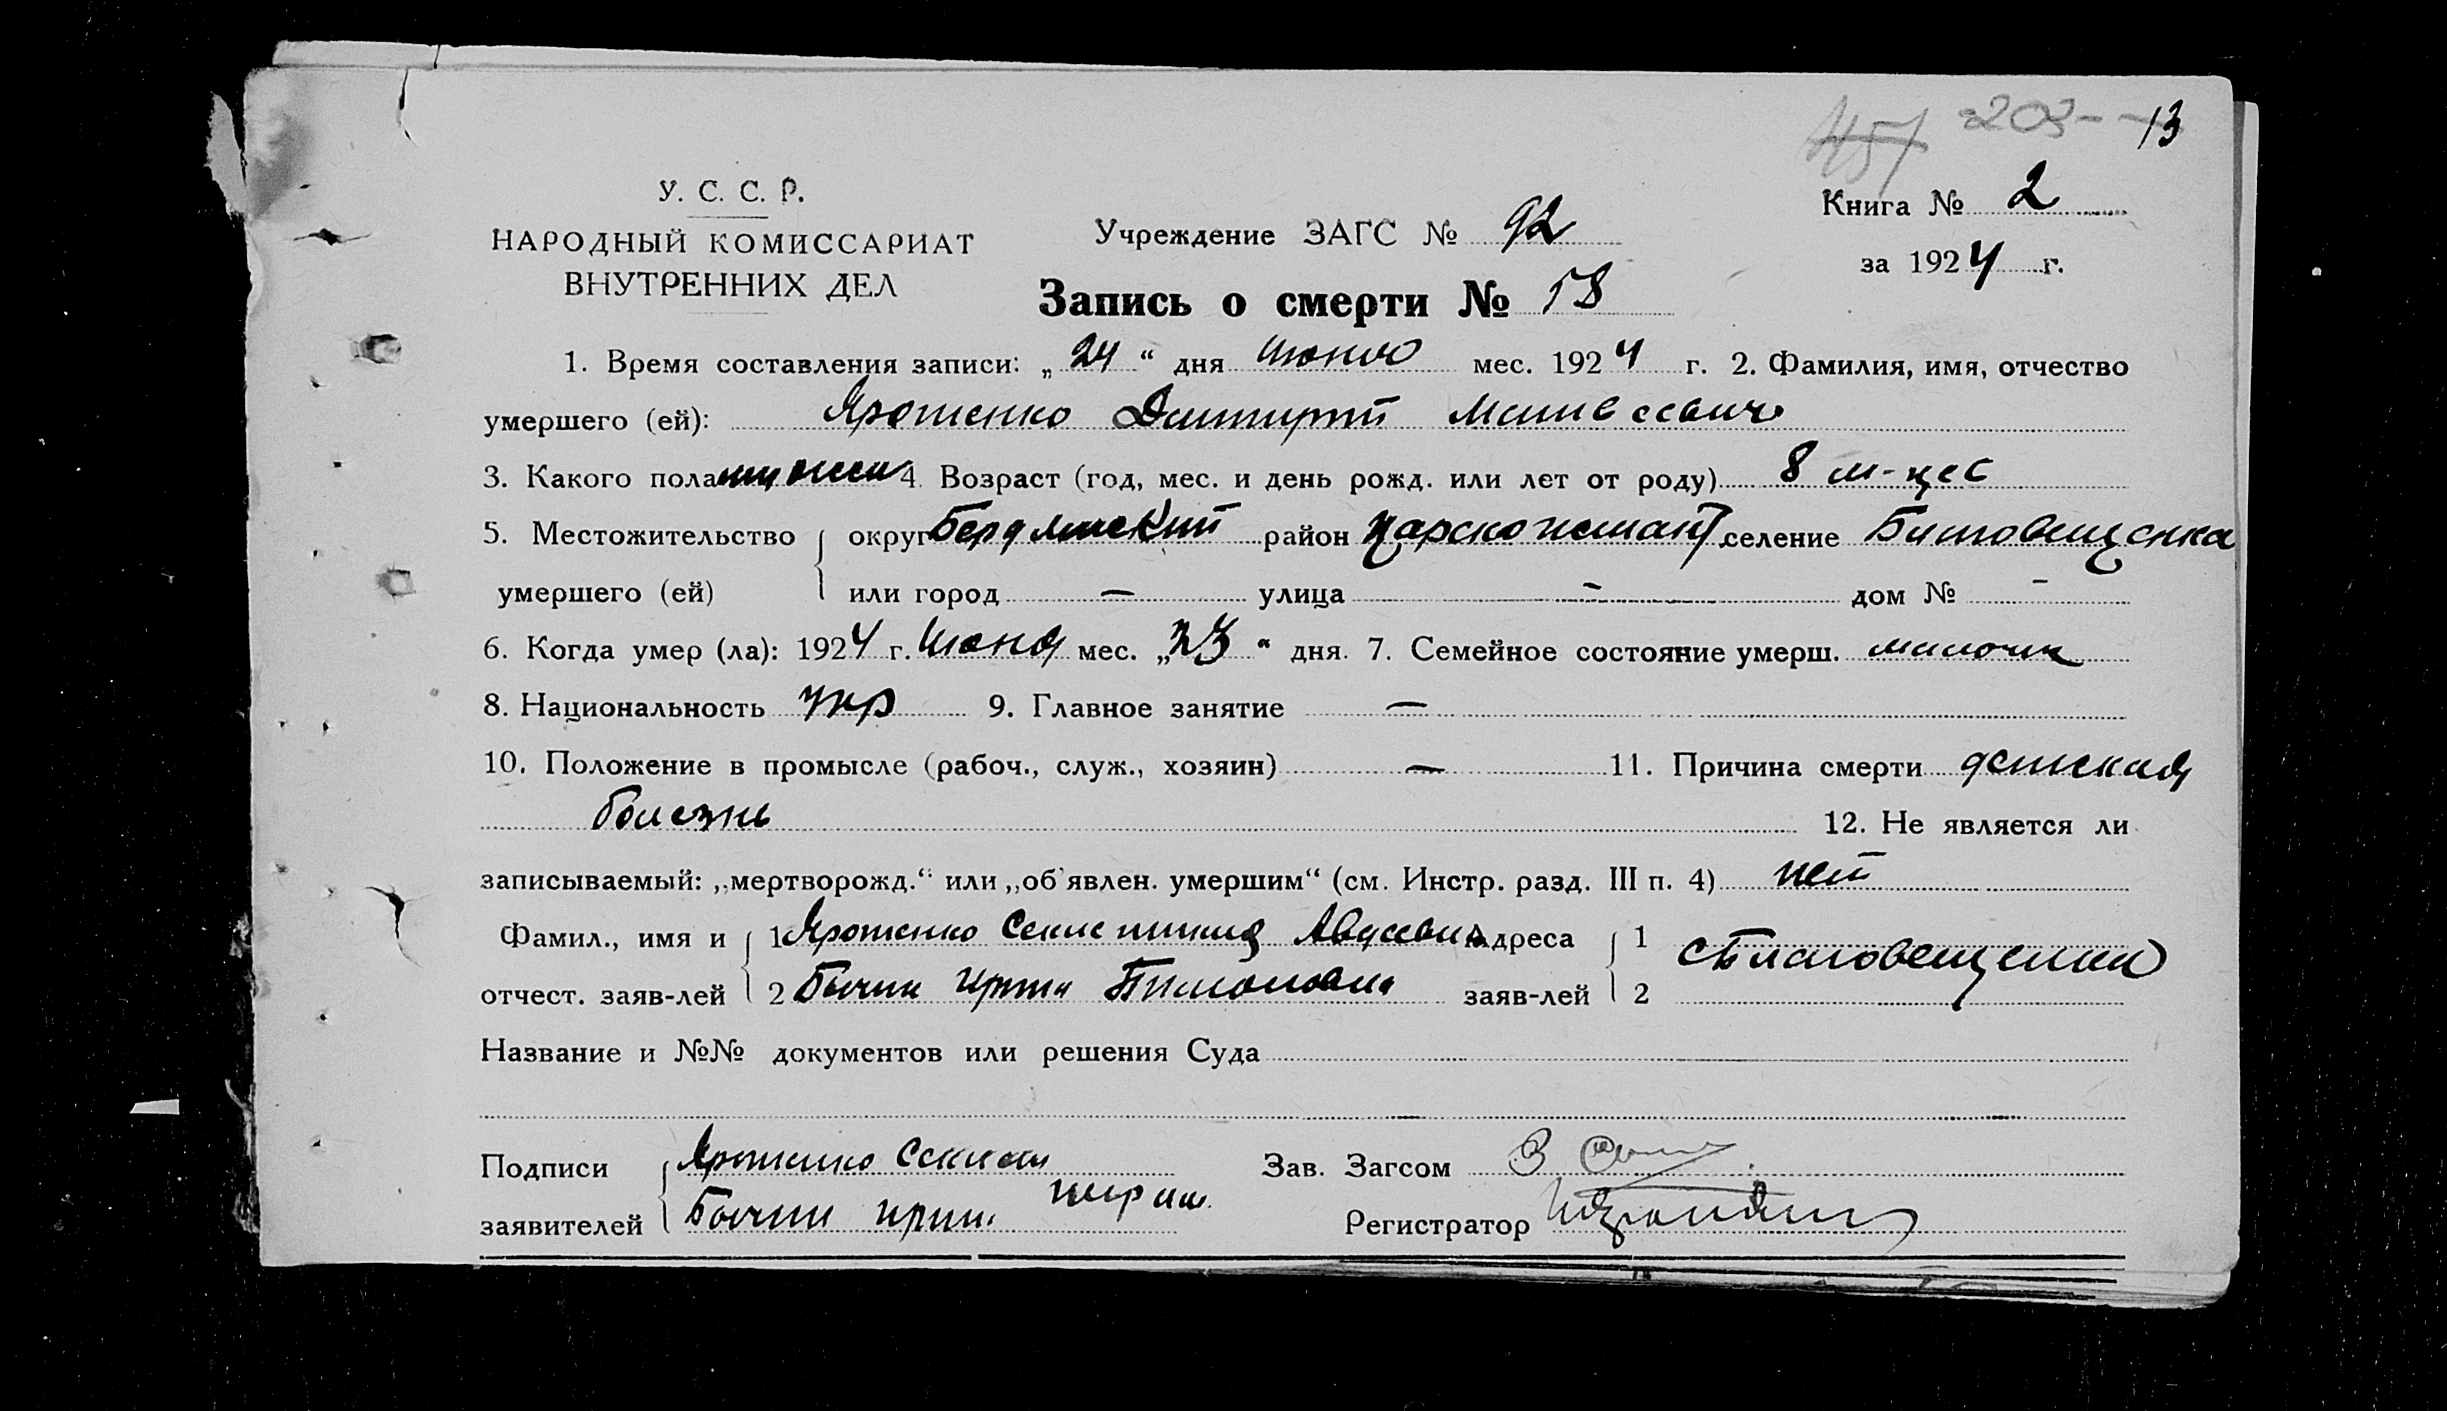 457 203 13
У. С. С. Р.
НАРОДНЫЙ КОМИССАРИАТ
ВНУТРЕННИХ ДЕЛ
Учреждение ЗАГС № 92
Книга № 2
за 1924 г.
Запись о смерти № 58
1. Время составления записи: „24“ дня Июню мес. 1924 г. 2. Фамилия, имя, отчество
умершего (ей): Ярошенко Дмитрий
3. Какого пола мужск 4. Возраст (год, мес. и день рожд. или лет от роду) 8 м-цес
5. Местожительство округ Бердянский район селение
умершего (ей) или город — улица — дом № —
6. Когда умер (ла): 1924 г. Июня мес. „23“ дня. 7. Семейное состояние умерш.
8. Национальность Укр 9. Главное занятие —
10. Положение в промысле (рабоч., служ., хозяин) — 11. Причина смерти детская
болезнь 12. Не является ли
записываемый: „мертворожд.“ или „об'явлен. умершим“ (см. Инстр. разд. III п. 4) нет
Фамил., имя и 1 Ярошенко Адреса 1 с Благовещенка
отчест. заяв-лей 2 заяв-лей 2
Название и №№ документов или решения Суда
Подписи Ярошенко Зав. Загсом
заявителей Регистратор